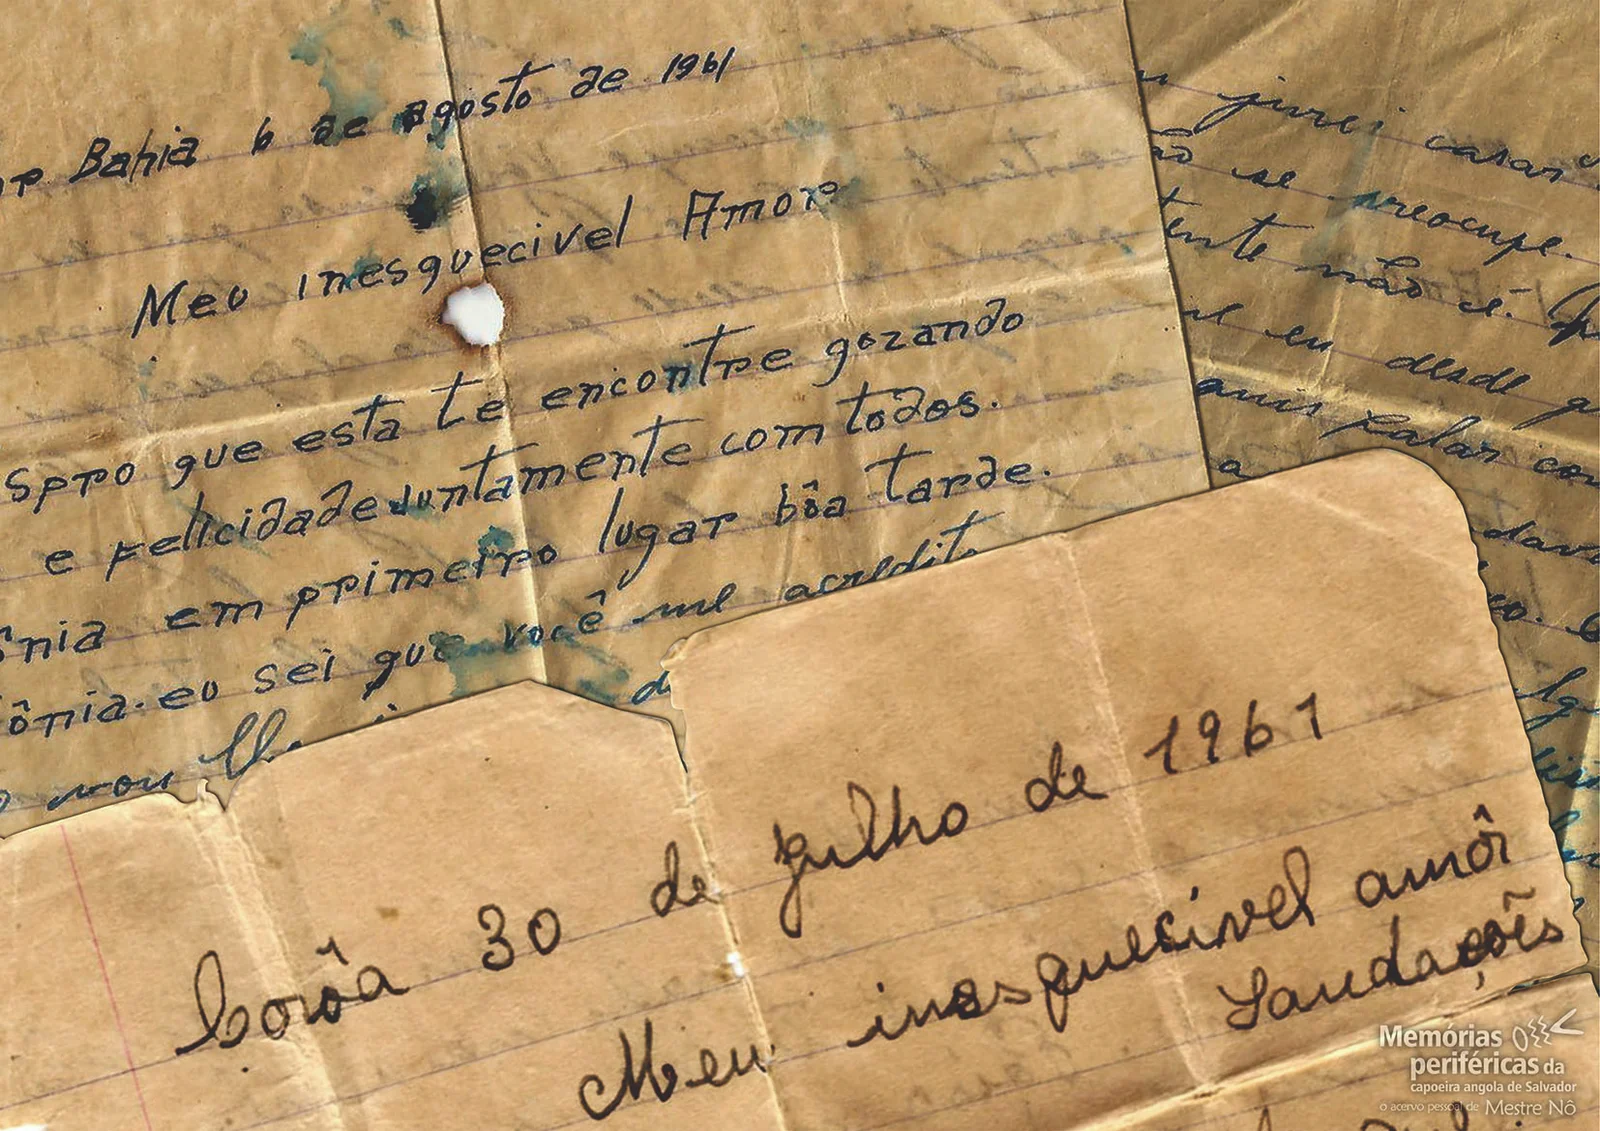 Bahia 6 de agosto de 1961
Meu inesquecivel Amor
spro que esta te encontre gozando
e felicidade juntamente com todos.
ônia em primeiro lugar bôa tarde.
ônia. eu sei que você me acredita
vou lhe
jurei casar
se preocupe.
tente não é.
eu desde
falar con
a
Corôa 30 de julho de 1961
Meu inesquecivel amôr
Saudações
Memórias
periféricas da
capoeira angola de Salvador
o acervo pessoal de Mestre Nô